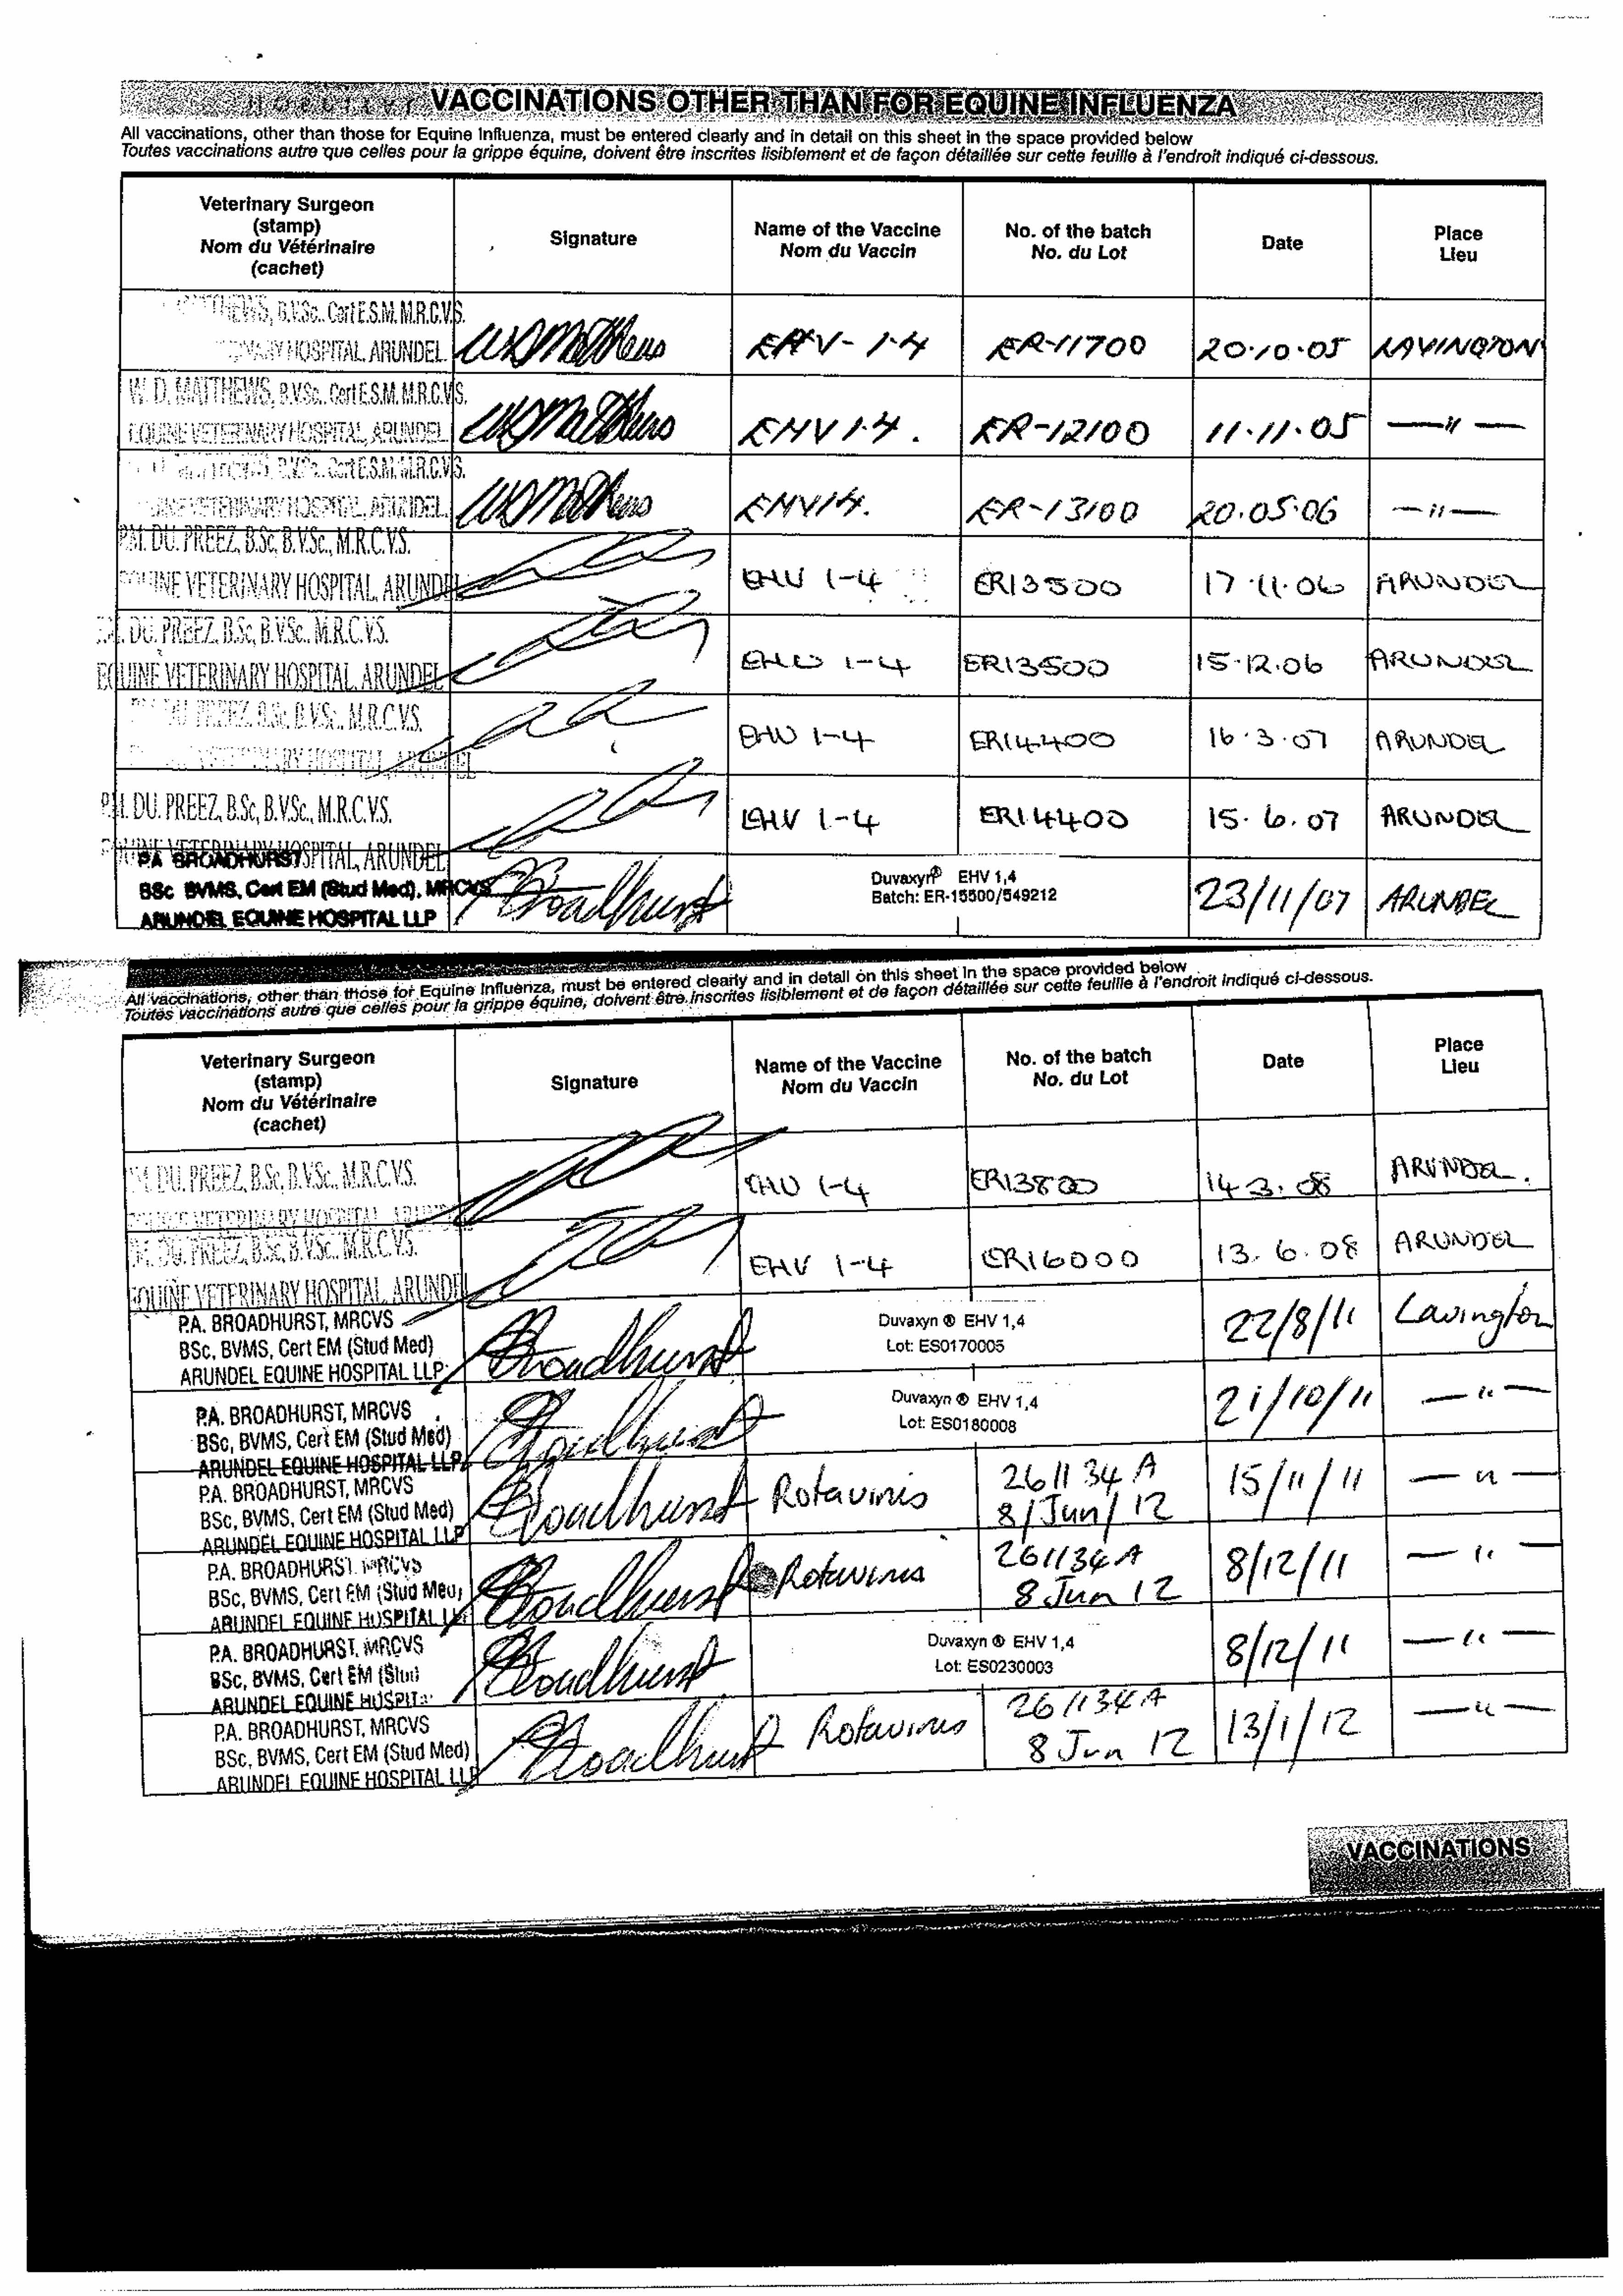 VACCINATIONS OTHER THAN FOR EQUINE INFLUENZA
All vaccinations, other than those for Equine Influenza, must be entered clearly and in detail on this sheet in the space provided below
Toutes vaccinations autre que celles pour la grippe équine, doivent être inscrites lisiblement et de façon détaillée sur cette feuille à l'endroit indiqué ci-dessous.
Veterinary Surgeon (stamp) Nom du Vétérinaire (cachet) Signature Name of the Vaccine Nom du Vaccin No. of the batch No. du Lot Date Place Lieu
MATTHEWS, B.V.Sc. Cert E.S.M. M.R.C.V.S.
HOSPITAL, ARUNDEL WDMatthews EHV-1.4 ER-11700 20.10.05 LAVINGTON
W. D. MATTHEWS, B.V.Sc. Cert E.S.M. M.R.C.V.S.
EQUINE VETERINARY HOSPITAL, ARUNDEL WDMatthews EHV1.4. ER-12100 11.11.05 —"—
MATTHEWS, B.V.Sc. Cert E.S.M. M.R.C.V.S.
EQUINE VETERINARY HOSPITAL, ARUNDEL WDMatthews EHV14. ER-13100 20.05.06 —"—
P.M. DU. PREEZ, B.Sc, B.V.Sc., M.R.C.V.S.
EQUINE VETERINARY HOSPITAL, ARUNDEL EHV 1-4 ER13500 17.11.06 ARUNDEL
P.M. DU. PREEZ, B.Sc, B.V.Sc., M.R.C.V.S.
EQUINE VETERINARY HOSPITAL, ARUNDEL EHV 1-4 ER13500 15.12.06 ARUNDEL
P.M. DU. PREEZ, B.Sc, B.V.Sc., M.R.C.V.S.
VETERINARY HOSPITAL, ARUNDEL EHV 1-4 ER14400 16.3.07 ARUNDEL
P.M. DU. PREEZ, B.Sc, B.V.Sc., M.R.C.V.S.
EQUINE VETERINARY HOSPITAL, ARUNDEL EHV 1-4 ER14400 15.6.07 ARUNDEL
P.A BROADHURST
BSc BVMS, Cert EM (Stud Med), MRCVS
ARUNDEL EQUINE HOSPITAL LLP Broadhurst Duvaxyn® EHV 1,4 Batch: ER-15500/549212 23/11/07 ARUNDEL
All vaccinations, other than those for Equine Influenza, must be entered clearly and in detail on this sheet in the space provided below
Toutes vaccinations autre que celles pour la grippe équine, doivent être inscrites lisiblement et de façon détaillée sur cette feuille à l'endroit indiqué ci-dessous.
Veterinary Surgeon (stamp) Nom du Vétérinaire (cachet) Signature Name of the Vaccine Nom du Vaccin No. of the batch No. du Lot Date Place Lieu
P.M. DU. PREEZ, B.Sc, B.V.Sc., M.R.C.V.S.
EQUINE VETERINARY HOSPITAL, ARUNDEL EHV 1-4 ER13800 14.3.08 ARUNDEL.
P.M. DU. PREEZ, B.Sc, B.V.Sc., M.R.C.V.S.
EQUINE VETERINARY HOSPITAL, ARUNDEL EHV 1-4 ER16000 13.6.08 ARUNDEL
P.A. BROADHURST, MRCVS
BSc, BVMS, Cert EM (Stud Med)
ARUNDEL EQUINE HOSPITAL LLP Broadhurst Duvaxyn ® EHV 1,4 Lot: ES0170005 22/8/11 Lavington
P.A. BROADHURST, MRCVS
BSc, BVMS, Cert EM (Stud Med)
ARUNDEL EQUINE HOSPITAL LLP Broadhurst Duvaxyn ® EHV 1,4 Lot: ES0180008 21/10/11 —"—
P.A. BROADHURST, MRCVS
BSc, BVMS, Cert EM (Stud Med)
ARUNDEL EQUINE HOSPITAL LLP Broadhurst Rotavirus 261134A 8/Jun/12 15/11/11 —"—
P.A. BROADHURST, MRCVS
BSc, BVMS, Cert EM (Stud Med)
ARUNDEL EQUINE HOSPITAL LLP Broadhurst Rotavirus 261134A 8 Jun 12 8/12/11 —"—
P.A. BROADHURST, MRCVS
BSc, BVMS, Cert EM (Stud
ARUNDEL EQUINE HOSPITA Broadhurst Duvaxyn ® EHV 1,4 Lot: ES0230003 8/12/11 —"—
P.A. BROADHURST, MRCVS
BSc, BVMS, Cert EM (Stud Med)
ARUNDEL EQUINE HOSPITAL LLP Broadhurst Rotavirus 261134A 8 Jun 12 13/1/12 —"—
VACCINATIONS